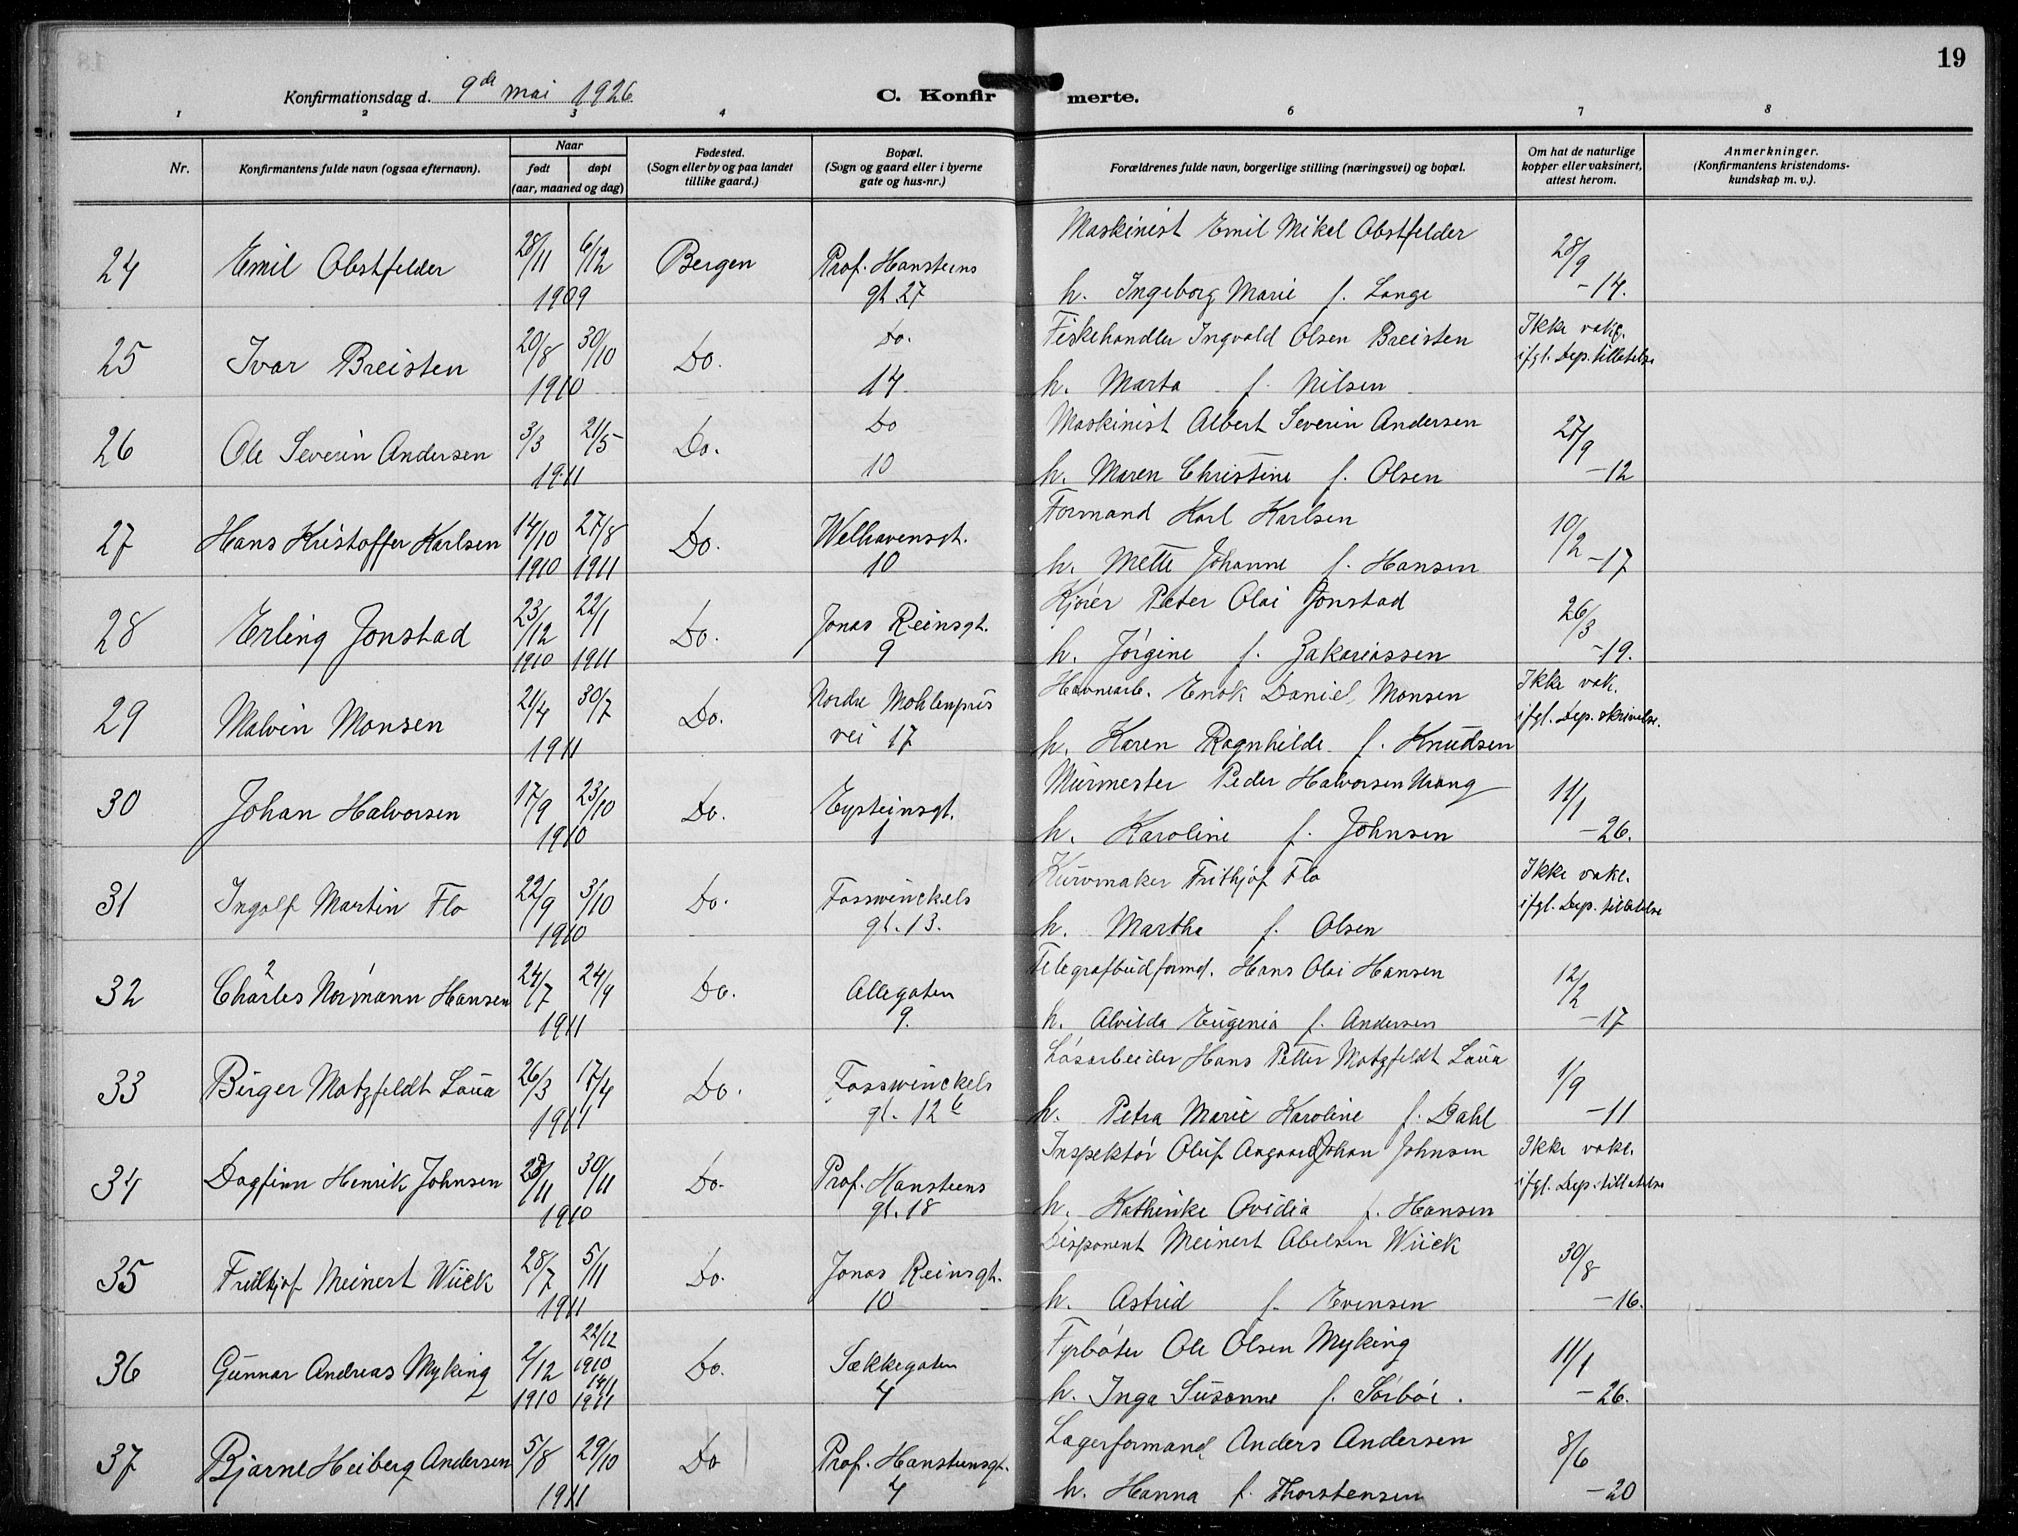 19
Konfirmationsdag d. 9de mai 1926 C. Konfirmerte.
1 2 3 4 5 6 7 8
Nr. Konfirmantens fulde navn (ogsaa efternavn). Naar født døpt (aar, maaned og dag) Fødested. (Sogn eller by og paa landet tillike gaard.) Bopæl. (Sogn og gaard eller i byerne gate og hus-nr.) Forældrenes fulde navn, borgerlige stilling (næringsvei) og bopæl. Om hat de naturlige kopper eller vaksinert, attest herom. Anmerkninger. (Konfirmantens kristendomskundskap m. v.).
Maskinist Emil Mikel Obstfelder
24 Emil Obstfelder 28/11 6/12 Bergen Prof. Hansteens 28/9
1909 gt 27 h. Ingeborg Marie f. Lange -14.
20/8 30/10 Do. Fiskehandler Ingvald Olsen Breisten Ikke vakc.
25 Ivar Breisten Do. ifgl. Dep. tilladelse
1910 14 h. Marta f. Nilsen
Do Maskinist Albert Severin Andersen
26 Ole Severin Andersen 3/3 21/5 Do. 27/9
1911 10 h. Maren Christine f. Olsen -12
Formand Karl Karlsen
27 Hans Kristoffer Karlsen 14/10 27/8 Do. Welhavensgt. 10/2
1910 1911 10 h. Mette Johanne f. Hansen -17
Kjører Peter Olai Jonstad
28 Erling Jonstad 23/12 22/1 Do. Jonas Reinsgt. 26/3
1910 1911 9 h. Jørgine f. Zakariassen -19.
Havnearb. Enok Daniel Monsen Ikke vak.
29 Malvin Monsen 21/4 30/7 Do. Nordre Mohlenpris ifgl. Dep. skrivelse.
1911 vei 17 h. Karen Ragnhilde f. Knudsen
Murmester Peder Halvorsen Urang
30 Johan Halvorsen 17/9 23/10 Do. Eysteinsgt. 11/1
1910 1 h. Karoline f. Johnsen -26.
Kurvmaker Frithjof Flo Ikke vake.
31 Ingolf Martin Flo 22/9 3/10 Do. Fosswinckels ifgl. Dep. tilladelse
1910 gt. 13. h. Martha f. Olsen
2 Telegrafbudformd. Hans Olai Hansen
32 Charles Normann Hansen 24/7 24/9 Do. Allegaten 12/2
1911 9. h. Alvilda Eugenia f. Andersen -17
Løsarbeider Hans Petter Motzfeldt Laua
33 Birger Motzfeldt Laua 26/3 17/4 Do. Fosswinckels 1/9
1911 gt. 12 b h. Petra Marie Karoline f. Dahl -11
Inspektør Oluf Aagaard Johan Johnsen Ikke vake.
34 Dagfinn Henrik Johnsen 23/11 30/11 Do. Prof. Hansteens ifgl. Dep. tilladelse
1910 gt. 18 h. Kathinke Ovidia f. Hansen
Disponent Meinert Abelsen Wiick
35 Frithjof Meinert Wiick 28/7 5/11 Do. Jonas Reinsgt. 30/8
1911 10 h. Astrid f. Evensen -16.
22/12 Fyrbøter Ole Olsen Myking
36 Gunnar Andreas Myking 2/12 1910 Do. Sækkegaten 11/1
14/1
1910 1911 4 h. Inga Susanne f. Sørbør. -26.
Lagerformand Anders Andersen
37 Bjarne Heiberg Andersen 5/8 29/10 Do Prof. Hansteensgt. 8/6
1911 4 h. Hanna f. Thorstensen -20